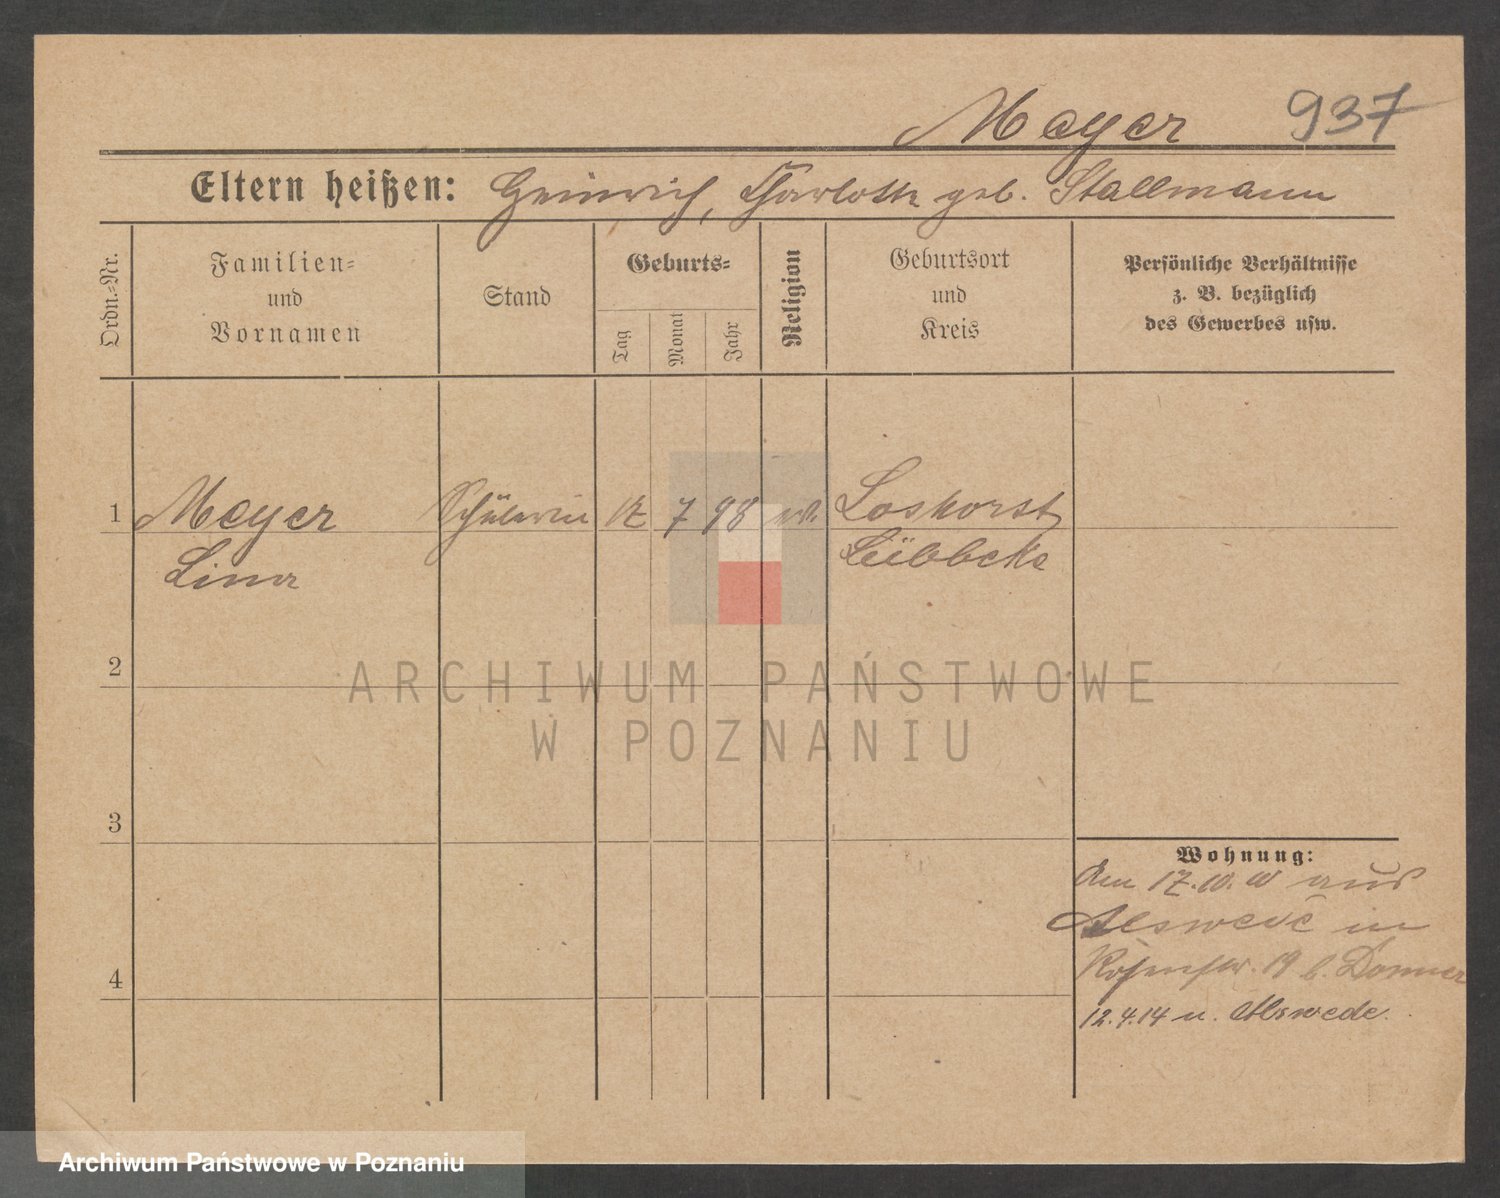 Meyer 937
Eltern heißen: Heinrich, Charlotte geb. Stallmann
Ordn.-Nr.
Familien-
und
Vornamen
Stand
Geburts-
Tag
Monat
Jahr
Religion
Geburtsort
und
Kreis
Persönliche Verhältnisse
z. B. bezüglich
des Gewerbes usw.
1 Meyer Schülerin 12 7 98 ev. Loshorst
Lina Lübbeke
2
ARCHIWUM PAŃSTWOWE
W POZNANIU
3
Wohnung:
Am 17.10. aus
Alswede in
19 b. Donner
4
12.4.14 n. Alswede.
Archiwum Państwowe w Poznaniu